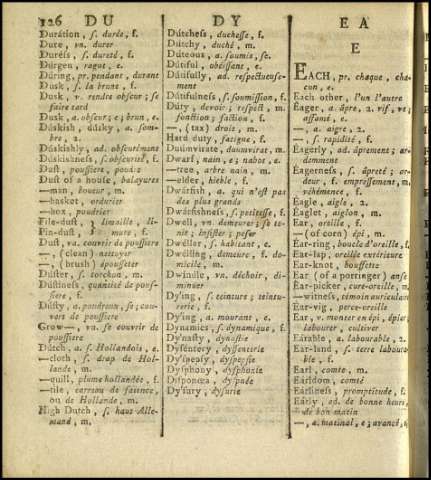 126 DU
Duration, s. durée, f.
Dure, vn. durer
Duress, s. dureté, f.
Durgen, ragot, e.
Düring, pr. pendant, durant
Dusk, s. la brune, f.
Dusk, v. rendre obscur; se
faire tard
Dusk, a. obscur; e; brun, e.
Duskish, dusky, a. som-
bre, 2.
Duskishly, ad. obscurément
Duskishness, s. obscurité, f.
Dust, poussiere, poudre
Dust of a house, balayures
—man, boueur, m.
—basket, ordurier
—box, poudrier
File-dust, s. limaille, f.
Pin-dust, s. f.
Dust, va. couvrir de poussiere
—, (clean) nettoyer
—, (brush) épousseter
Duster, s. torchon, m.
Dustiness, quantité de pous-
siere, f.
Dusty, a. poudreux, se; cou-
vert de poussiere
Grow—, vn. se couvrir de
poussiere
Dutch, a. s. Hollandois, e.
—cloth, s. drap de Hol-
lande, m.
—quill, plume hollandée, f.
—tile, carreau de faience,
ou de Hollande, m.
High Dutch, s. haut Alle-
mand, m.
DY
Dutchess, duchesse, f.
Dutchy, duché, m.
Duteous, a. soumis, se.
Dutiful, obéissant, e.
Dutifully, ad. respectueuse-
ment
Dutifulness, s. soumission, f.
Duty, devoir; respect, m.
fonction; faction, f.
—, (tax) droit, m.
Hard duty, fatigue, f.
Duumvirate, duumvirat, m.
Dwarf, nain, e; nabot, e.
—tree, arbre nain, m.
—elder, hieble, f.
Dwarfish, a. qui n'est pas
des plus grands
Dwarfishness, s. petitesse, f.
Dwell, vn. demeurer; se te-
nir; insister
Dweller, s. habitant, e.
Dwelling, demeure, f. do-
micile, m.
Dwindle, vn. déchoir, di-
minuer
Dy'ing, s. teinture; teintu-
rerie, f.
Dy'ing, a. mourant, e.
Dynamics, s. dynamique, f.
Dy'nasty, dynastie
Dy'sentery, dyssenterie
Dy'spepsy, dyspepsie
Dy'sphony, dysphonie
Dyspnœa, dyspnée
Dy'sury, dysurie
EA
E
EACH, pr. chaque, cha-
cun, e.
Each other, l'un l'autre
Eager, a. âpre, 2. vif, ve;
affamé, e.
—, a. aigre, 2.
—, s. rapidité, f.
Eagerly, ad. âprement; ar-
demment
Eagerness, s. âpreté; ar-
deur, f. empressement, m.
véhémence, f.
Eagle, aigle, 2.
Eaglet, aiglon, m.
Ear, oreille, f.
— (of corn) épi, m.
Ear-ring, boucle d'oreille, f.
Ear-lap, oreille extérieure
Ear-knot, bouffette
Ear (of a porringer) anse
Ear-picker, cure-oreille, m.
—witness, témoin auriculaire
Ear-wig, perce-oreille
Ear, v. monter en épi, épier;
labourer, cultiver
Earable, a. labourable, 2.
Ear-land, s. terre laboura-
ble, f.
Earl, comte, m.
Earldom, comté
Earliness, promptitude, f.
Early, ad. de bonne heure,
de bon matin
—, a. matinal, e; avancé, e